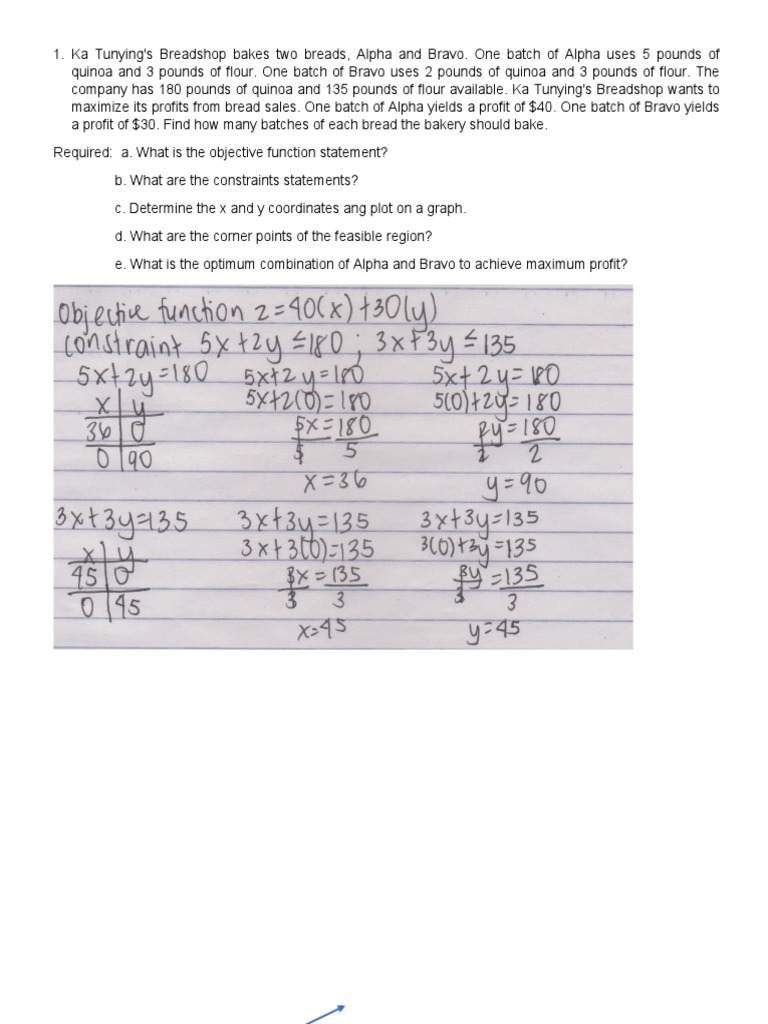 1. Ka Tunying's Breadshop bakes two breads, Alpha and Bravo. One batch of Alpha uses 5 pounds of
quinoa and 3 pounds of flour. One batch of Bravo uses 2 pounds of quinoa and 3 pounds of flour. The
company has 180 pounds of quinoa and 135 pounds of flour available. Ka Tunying's Breadshop wants to
maximize its profits from bread sales. One batch of Alpha yields a profit of $40. One batch of Bravo yields
a profit of $30. Find how many batches of each bread the bakery should bake.
Required: a. What is the objective function statement?
b. What are the constraints statements?
c. Determine the x and y coordinates ang plot on a graph.
d. What are the corner points of the feasible region?
e. What is the optimum combination of Alpha and Bravo to achieve maximum profit?
Objective function z = 40(x) + 30(y)
constraint 5x + 2y ≤ 180 ; 3x + 3y ≤ 135
5x + 2y = 180 5x + 2y = 180 5x + 2y = 180
x | y 5x + 2(0) = 180 5(0) + 2y = 180
36 | 0 5x = 180 2y = 180
0 | 90 5 5 2 2
x = 36 y = 90
3x + 3y = 135 3x + 3y = 135 3x + 3y = 135
x | y 3x + 3(0) = 135 3(0) + 3y = 135
45 | 0 3x = 135 3y = 135
0 | 45 3 3 3 3
x = 45 y = 45